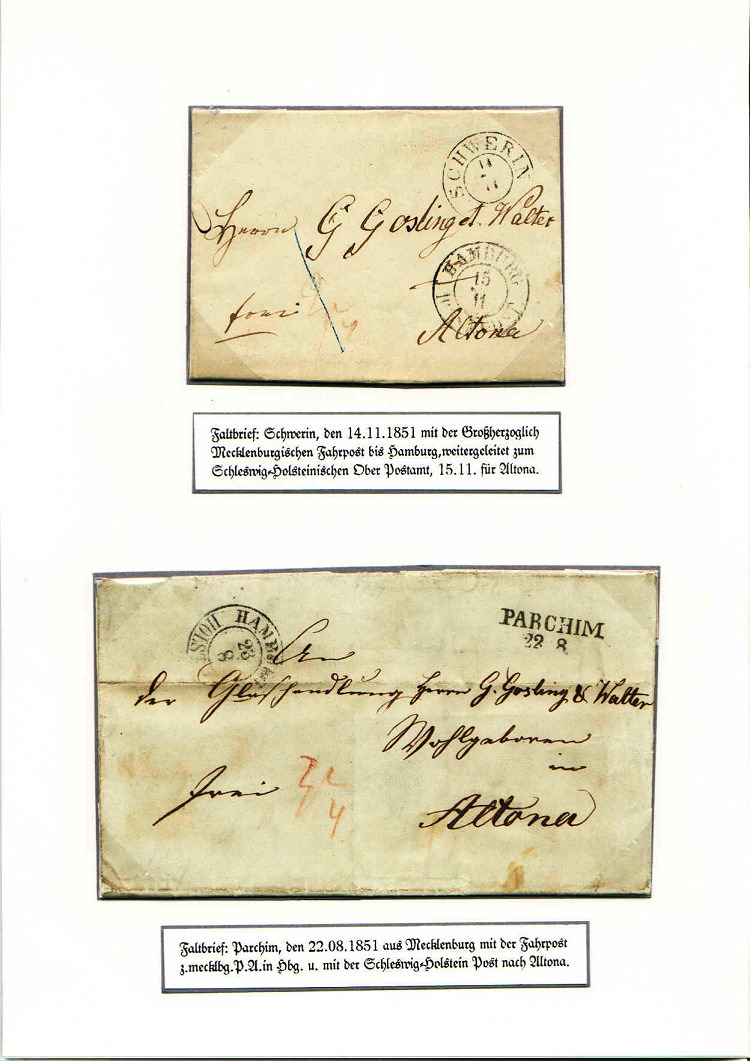 SCHWERIN
14
11
Herrn G Gosling et. Walter
HAMBURG
15
11
frei
Altona
Faltbrief: Schwerin, den 14.11.1851 mit der Großherzoglich
Mecklenburgischen Fahrpost bis Hamburg,weitergeleitet zum
Schleswig-Holsteinischen Ober Postamt, 15.11. für Altona.
HAMB
23
8
PARCHIM
22 8
An
der Glashandlung Herrn G. Gosling & Walter
Wohlgeboren
in
frei
4
Altona
Faltbrief: Parchim, den 22.08.1851 aus Mecklenburg mit der Fahrpost
z.mecklbg.P.A.in Hbg. u. mit der Schleswig-Holstein Post nach Altona.